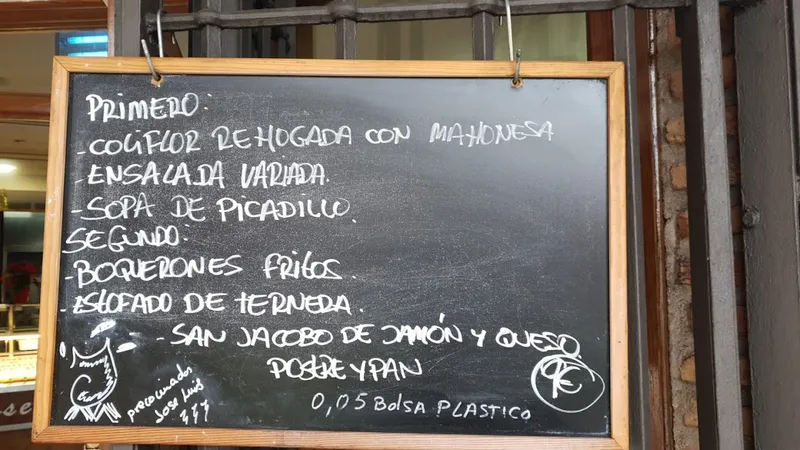 PRIMERO:
- COLIFLOR REHOGADA CON MAHONESA
- ENSALADA VARIADA.
- SOPA DE PICADILLO.
SEGUNDO:
- BOQUERONES FRITOS.
- ESTOFADO DE TERNERA.
- SAN JACOBO DE JAMÓN Y QUESO.
POSTRE Y PAN
9€
0,05 BOLSA PLASTICO
precocinados
Jose Luis